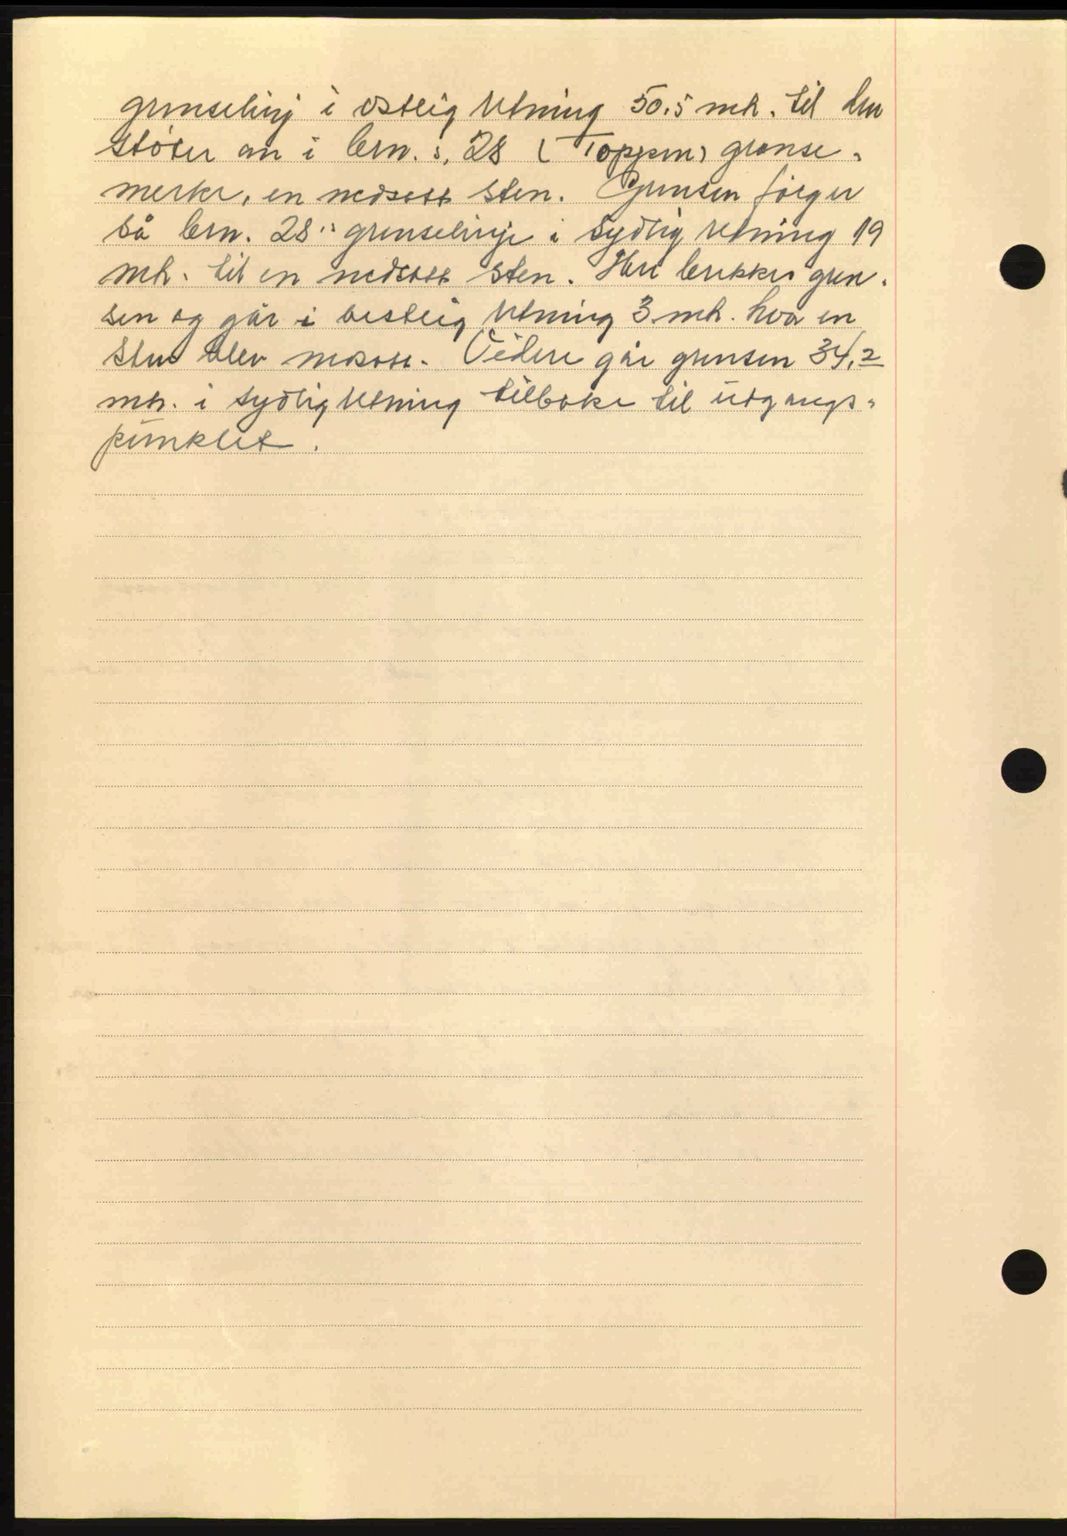 grenselinj i østlig retning 50,5 mtr. til den
støter an i brn. s. 28 (Toppen) grense-
merke, en nedsatt sten. Grensen følger
så brn. 28s grenselinje i sydlig retning 19
mtr. til en nedsatt sten. Her brekker gren-
sen og går i vestlig retning 3 mtr. hvor en
sten blev nedsatt. Videre går grensen 34,2
mtr. i sydlig retning tilbake til utgangs-
punktet.